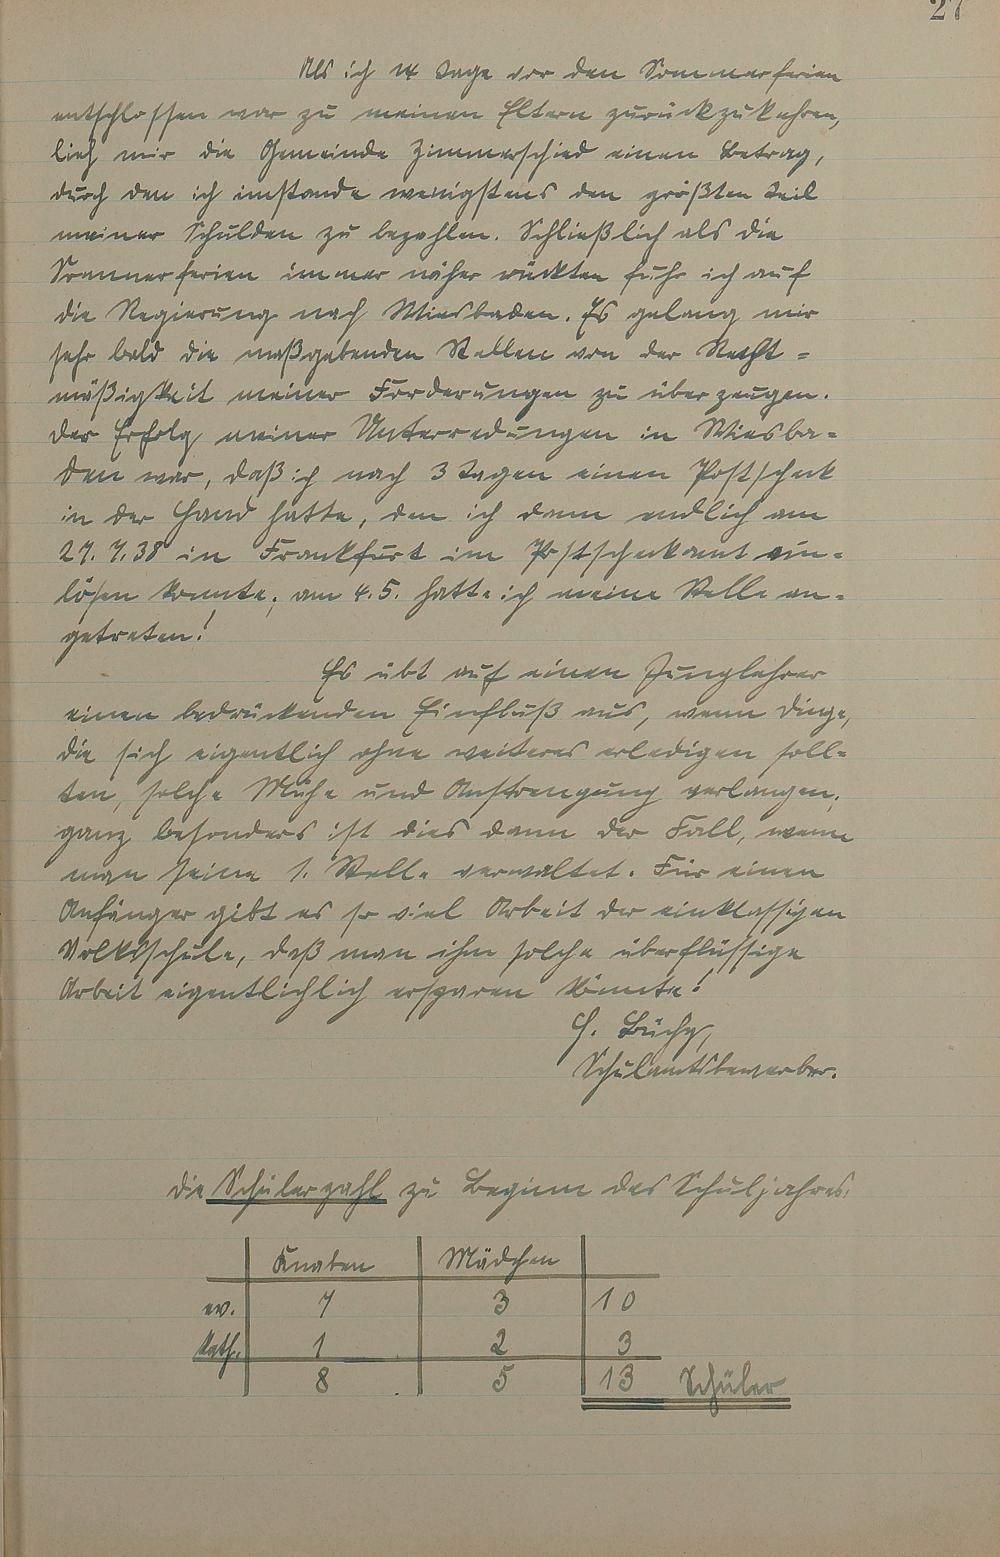 27
Als ich 14 Tage vor den Sommerferien
entschlossen war zu meinen Eltern zurückzukehren,
lieh mir die Gemeinde Zimmerschied einen Betrag,
durch den ich imstande wenigstens den größten Teil
meiner Schulden zu bezahlen. Schließlich als die
Sommerferien immer näher rückten fuhr ich auf
die Regierung nach Wiesbaden. Es gelang mir
sehr bald die maßgebenden Stellen von der Recht=
mäßigkeit meiner Forderungen zu überzeugen.
Der Erfolg meiner Unterredungen in Wiesba=
den war, daß ich nach 3 Tagen einen Postscheck
in der Hand hatte, den ich dann endlich am
27.7.38 in Frankfurt im Postscheckamt ein=
lösen konnte; am 4.5. hatte ich meine Stelle an=
getreten!
Es übt auf einen Junglehrer
einen bedrückenden Einfluß aus, wenn Dinge,
die sich eigentlich ohne weiteres erledigen soll=
ten, solche Mühe und Anstrengung verlangen;
ganz besonders ist dies dann der Fall, wenn
man seine 1. Stelle verwaltet. Für einen
Anfänger gibt es so viel Arbeit der einklassigen
Volksschule, daß man ihm solche überflüssige
Arbeit eigentlichlich ersparen könnte!
H. Büchy,
Schulamtsbewerber.
Die Schülerzahl zu Beginn des Schuljahres:
Knaben Mädchen
ev. 7 3 10
kath. 1 2 3
8 5 13 Schüler